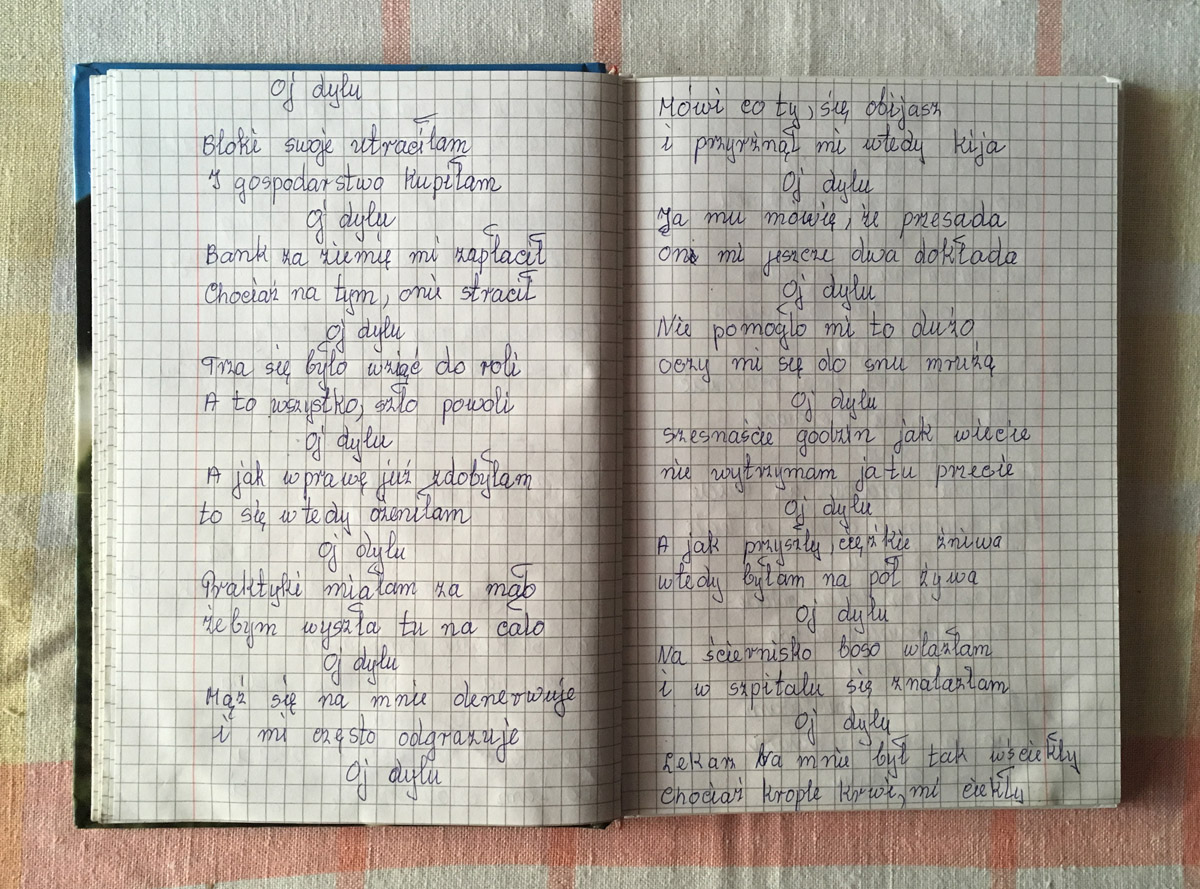 Oj dylu
Bloki swoje utraciłam
I gospodarstwo kupiłam
Oj dylu
Bank za ziemię mi zapłacił
Chociaż na tym, onie stracił
Oj dylu
Trza się było wziąć do roli
A to wszystko, szło powoli
Oj dylu
A jak wprawę już zdobyłam
to się wtedy ożeniłam
Oj dylu
Praktyki miałam za mało
żebym wyszła tu na cało
Oj dylu
Mąż się na mnie denerwuje
i mi często odgrazuje
Oj dylu
Mówi co ty, się obijasz
i przyrżnął mi wtedy kija
Oj dylu
Ja mu mówię, że przesada
On mi jeszcze dwa dokłada
Oj dylu
Nie pomogło mi to dużo
oczy mi się do snu mrużą
Oj dylu
szesnaście godzin jak wiecie
nie wytrzymam ja tu przecie
Oj dylu
A jak przyszły, ciężkie żniwa
wtedy byłam na pół żywa
Oj dylu
Na ściernisko boso wlazłam
i w szpitalu się znalazłam
Oj dylu
Lekarz na mnie był tak wściekły
Chociaż krople krwi, mi ciekły